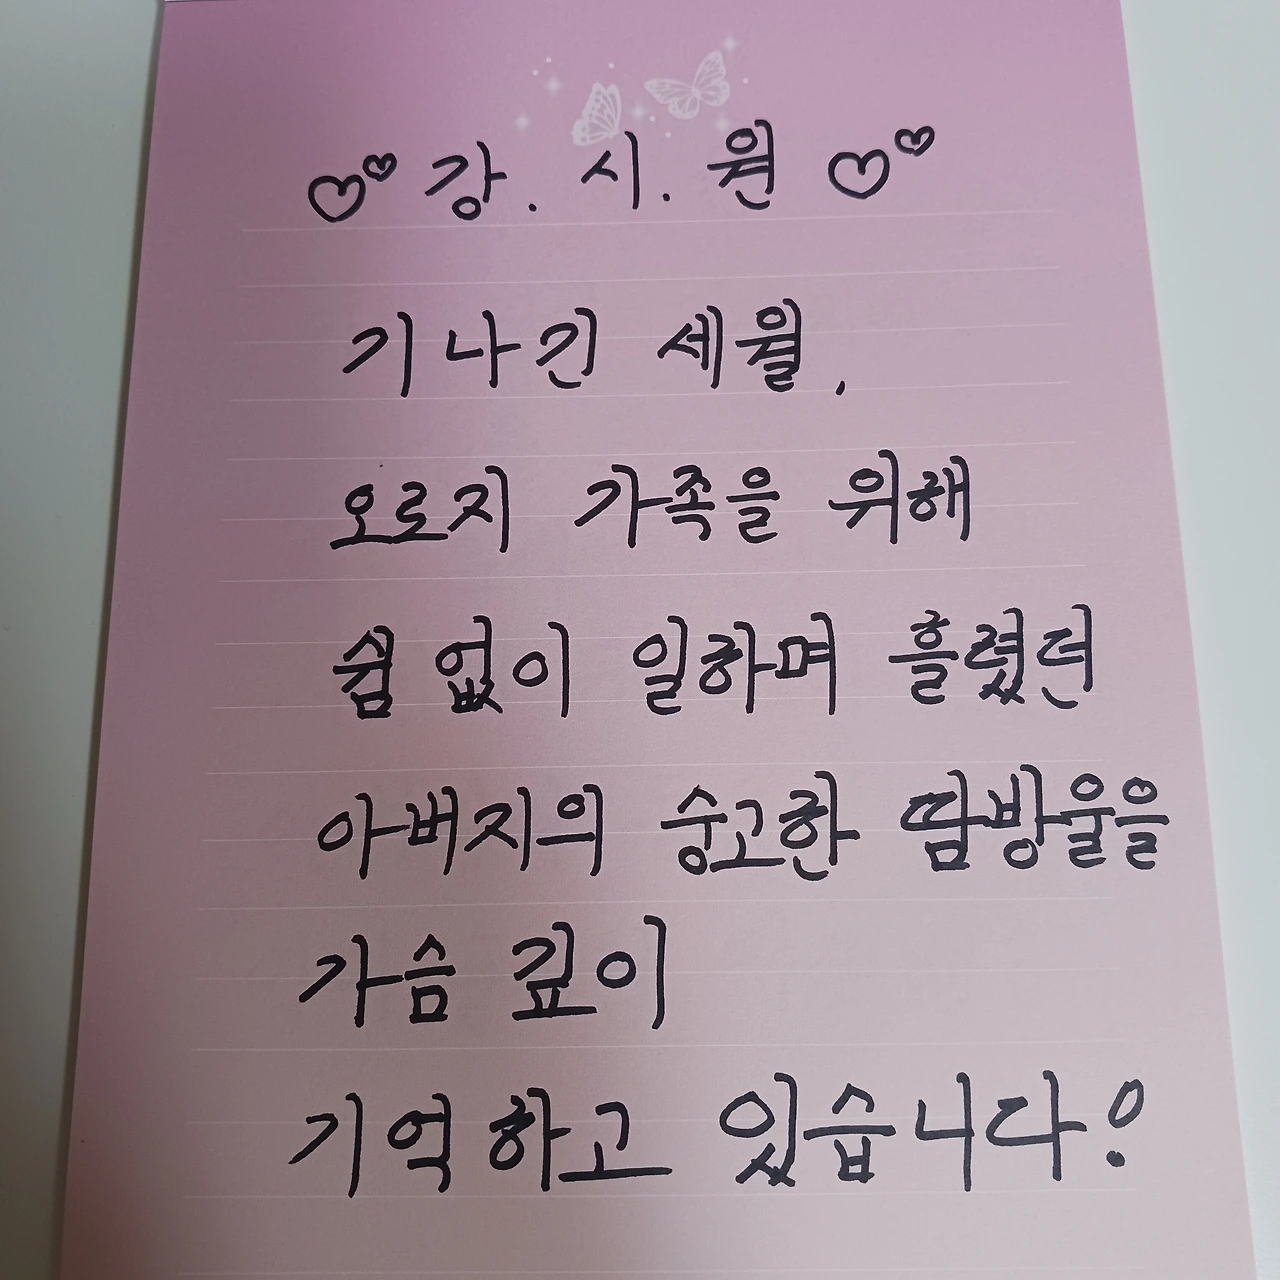 ♡♡ 강.시.원 ♡♡
기나긴 세월,
오로지 가족을 위해
쉼 없이 일하며 흘렸던
아버지의 숭고한 땀방울을
가슴 깊이
기억하고 있습니다!